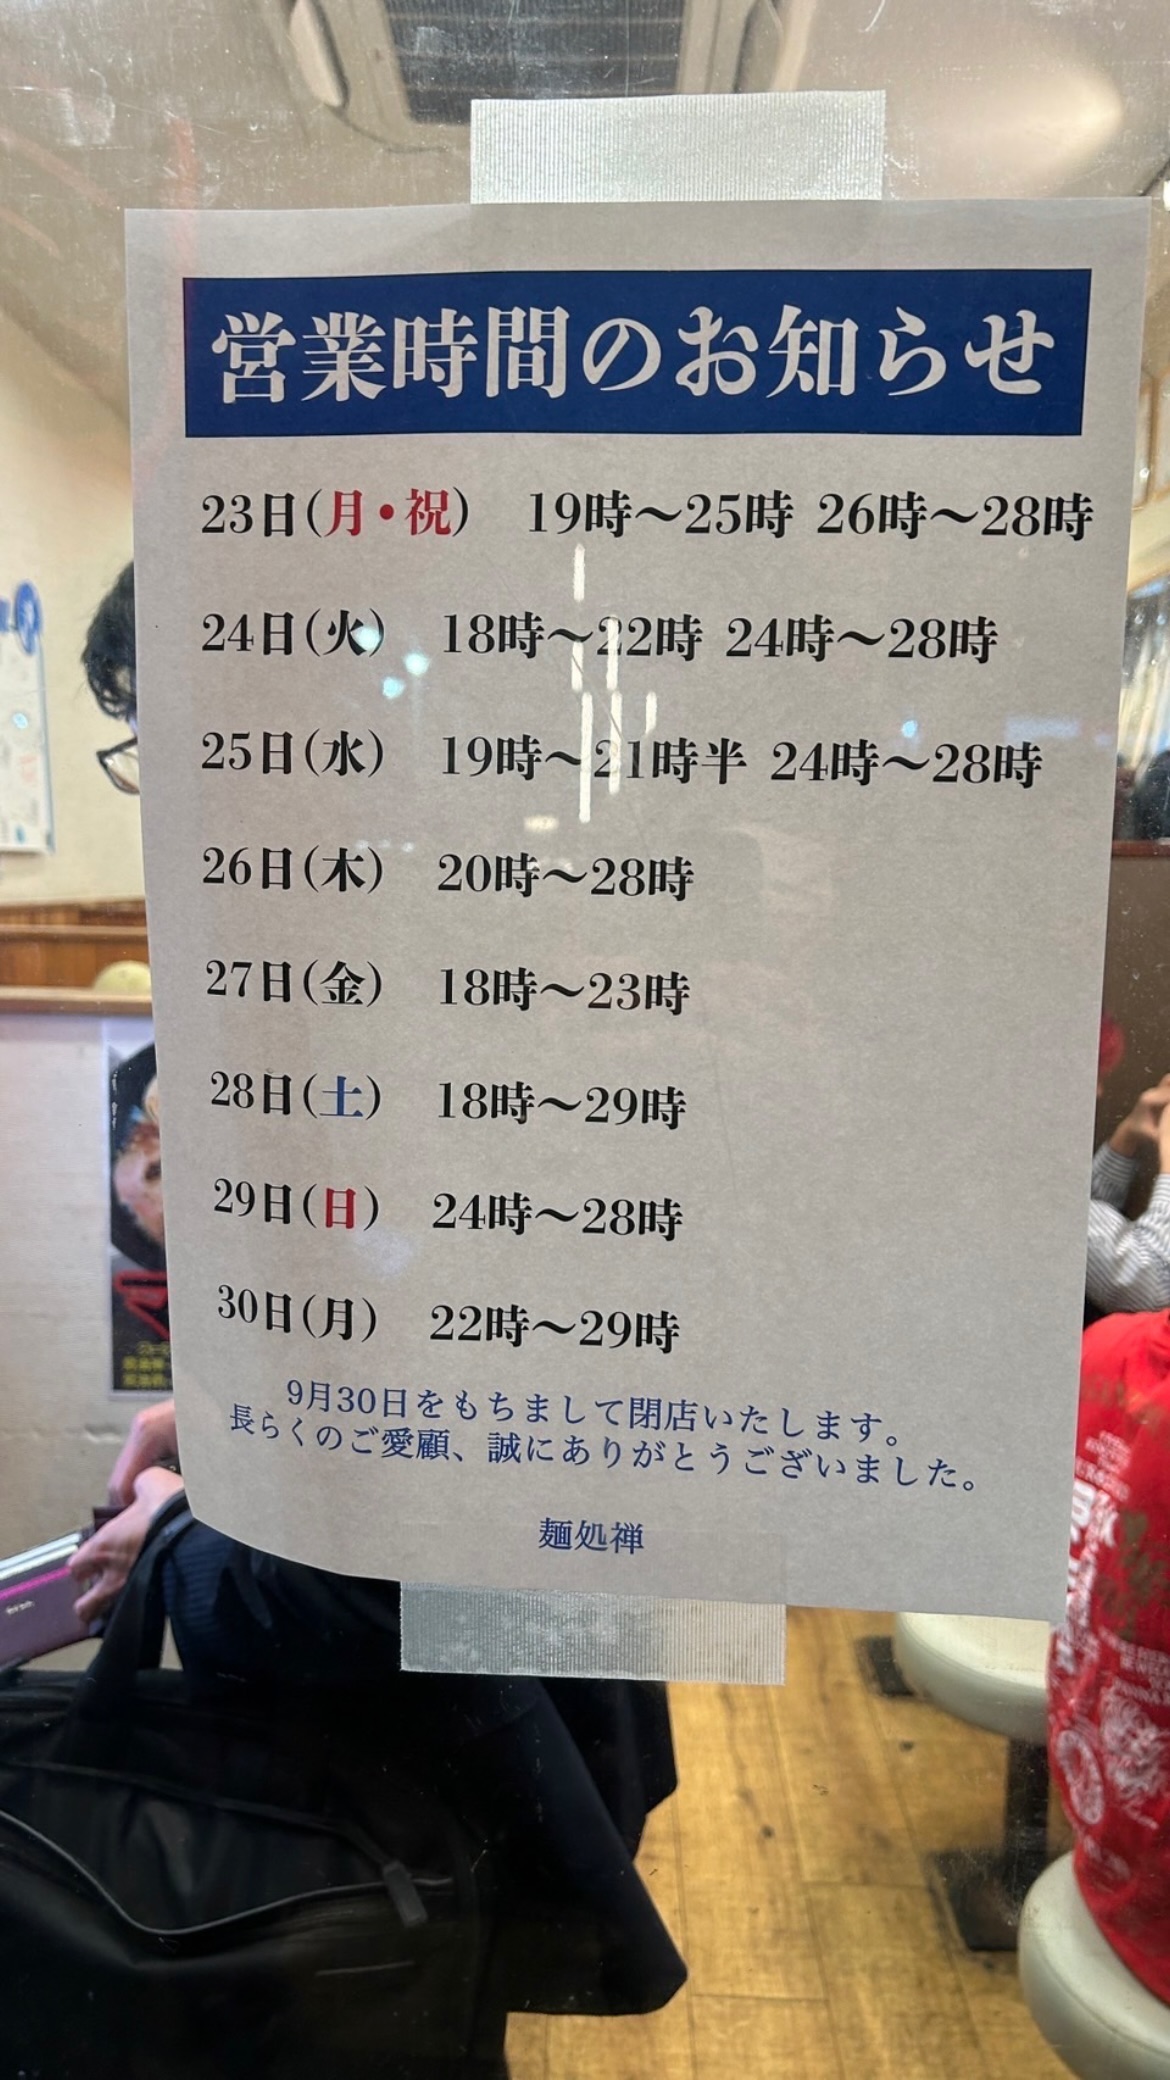 営業時間のお知らせ
23日(月・祝) 19時〜25時 26時〜28時
24日(火) 18時〜22時 24時〜28時
25日(水) 19時〜21時半 24時〜28時
26日(木) 20時〜28時
27日(金) 18時〜23時
28日(土) 18時〜29時
29日(日) 24時〜28時
30日(月) 22時〜29時
9月30日をもちまして閉店いたします。
長らくのご愛顧、誠にありがとうございました。
麺処禅